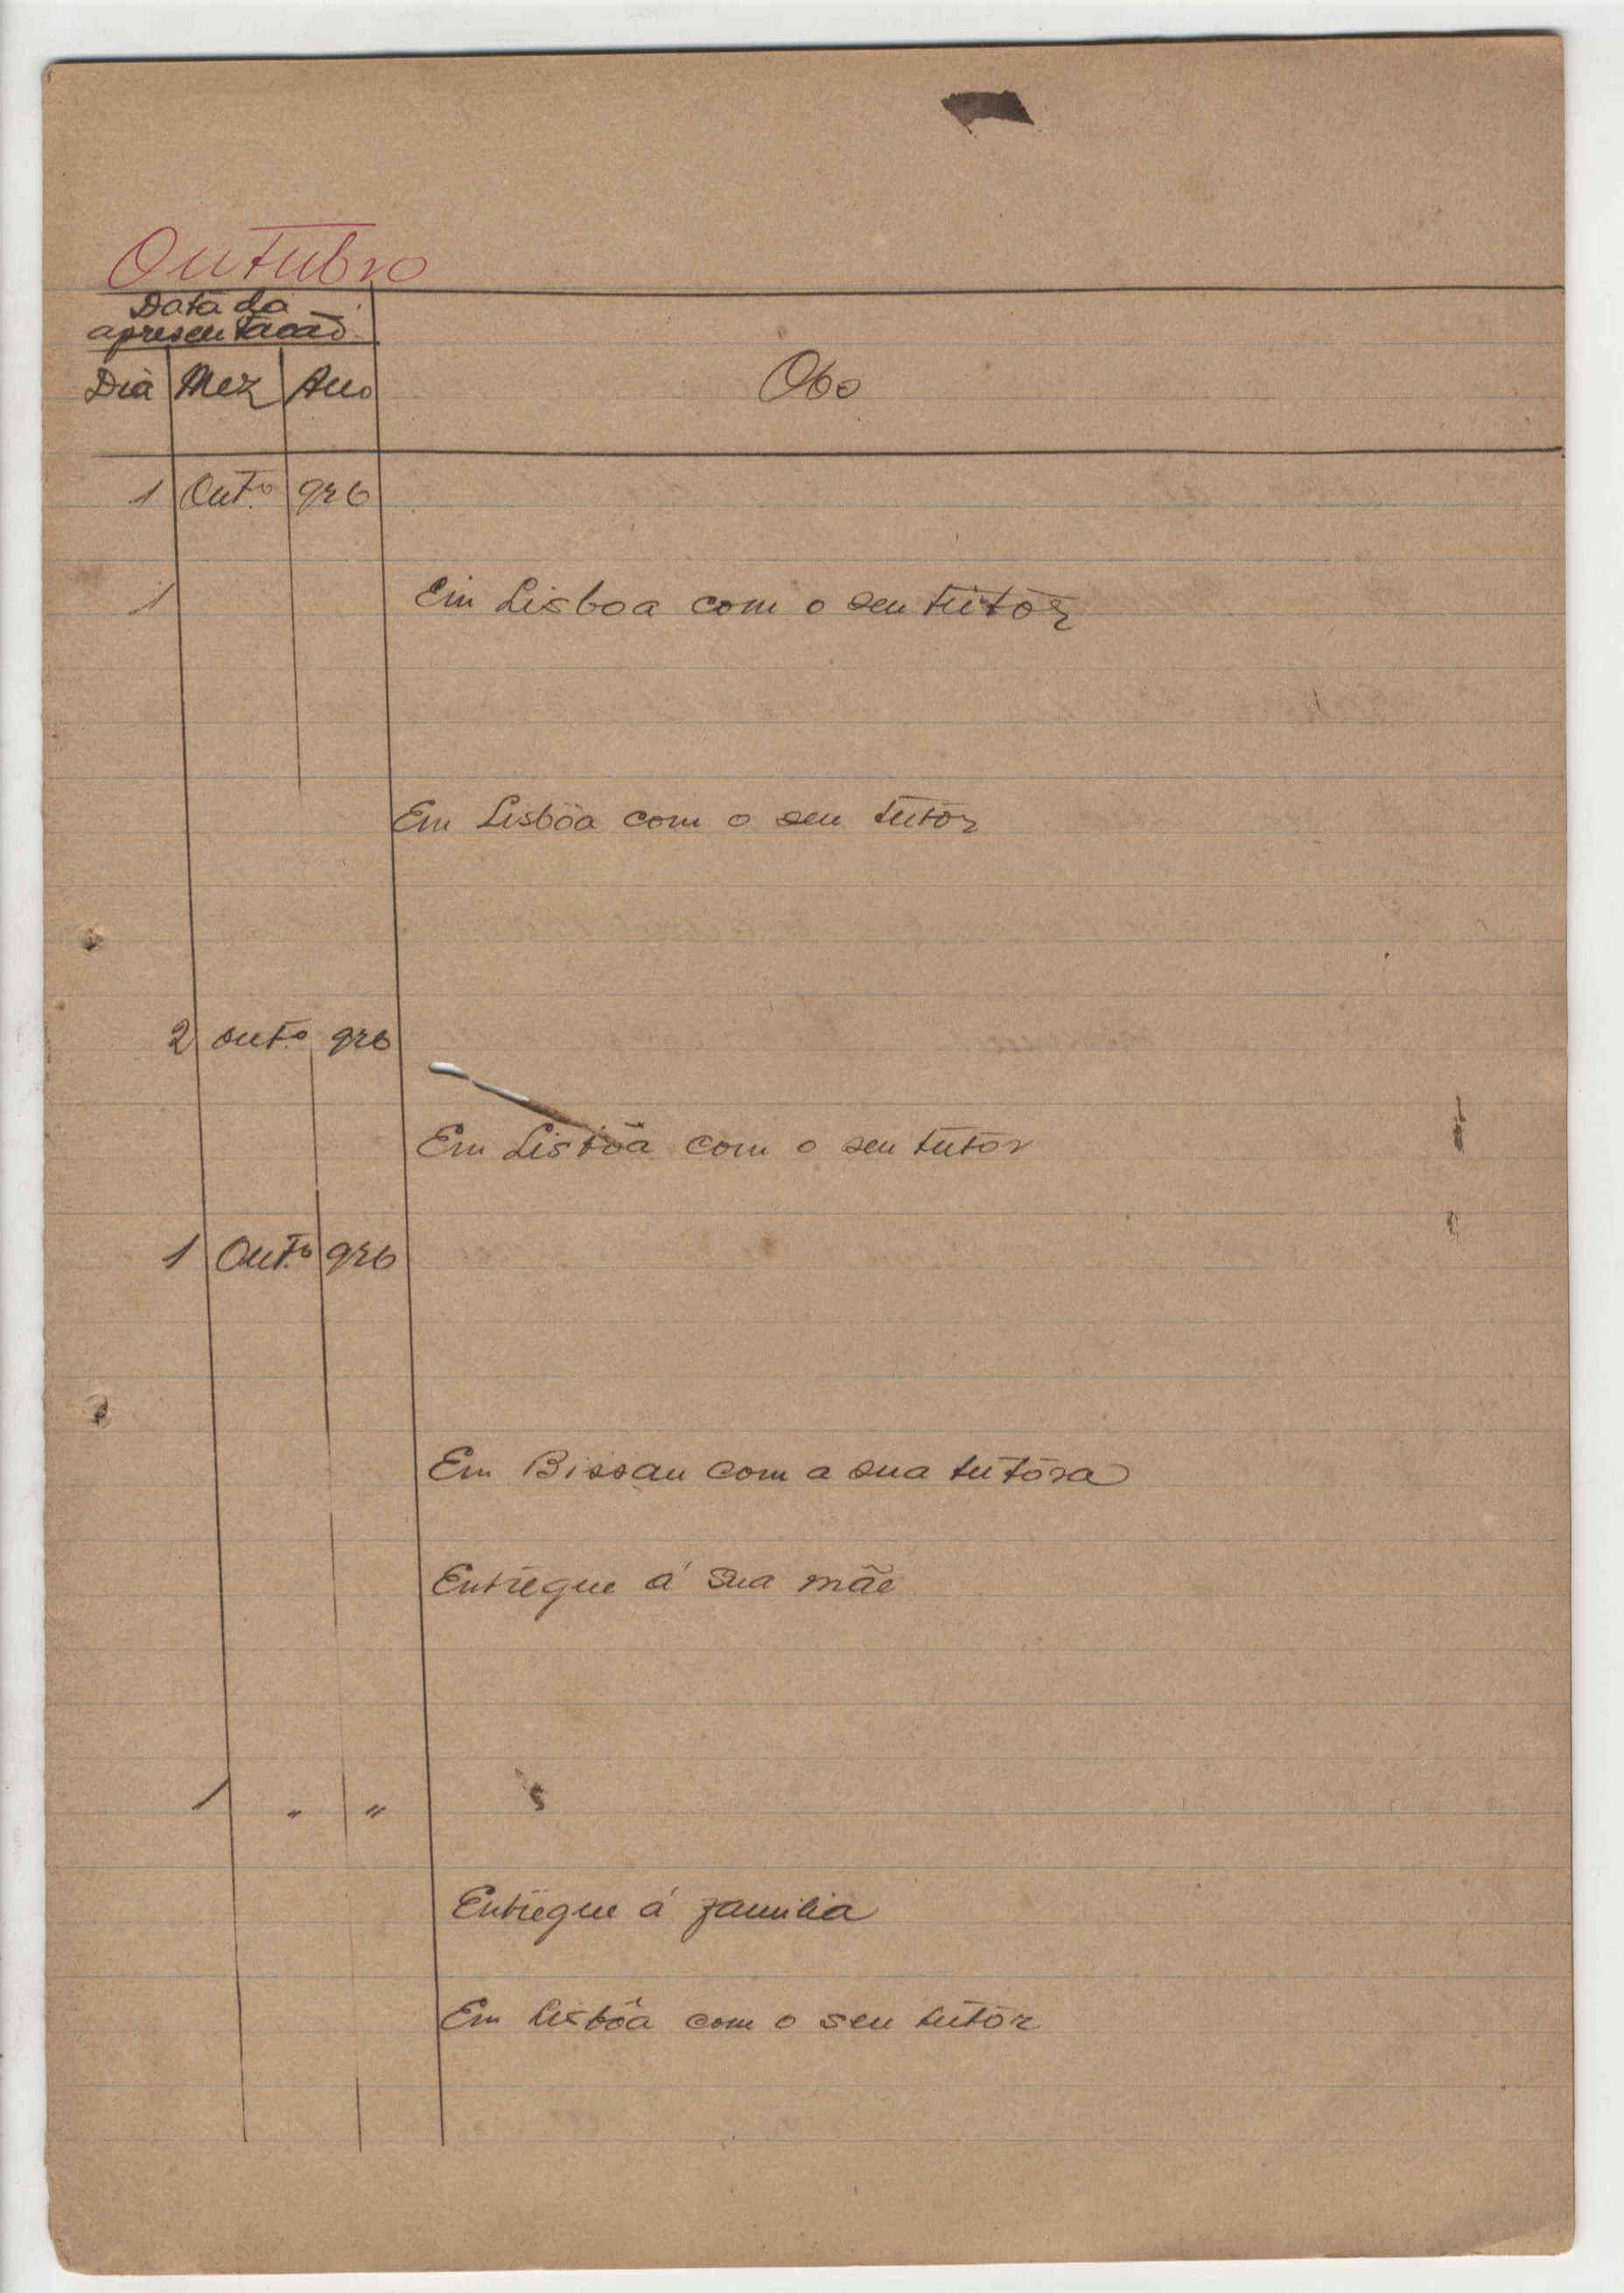 Outubro
Data da
apresentacão
Dia Mez Ano
Obs
1 Outº 926
1 Em Lisboa com o seu tutor
Em Lisbôa com o seu tutor
2 outº 926
Em Lisbôa com o seu tutor
1 Outº 926
Em Bissau com a sua tutora
Entregue á sua mãe
1 " "
Entregue á familia
Em Lisbôa com o seu tutor